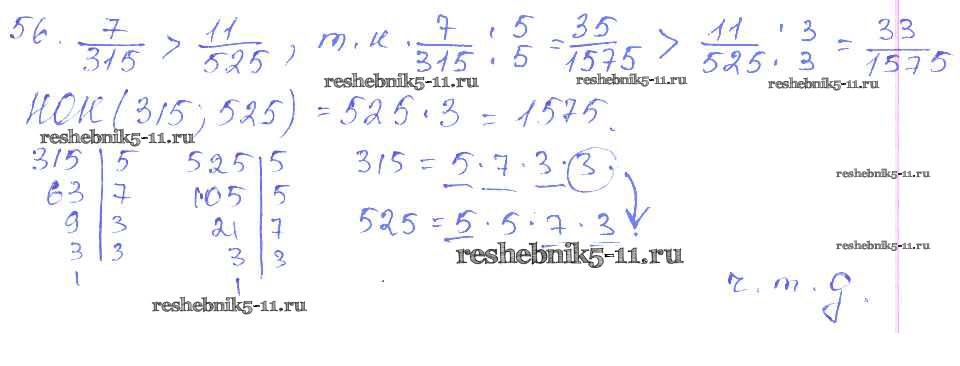 56. 7/315 > 11/525, т.к. 7/315 · 5/5 = 35/1575 > 11/525 · 3/3 = 33/1575
reshebnik5-11.ru reshebnik5-11.ru reshebnik5-11.ru
НОК(315; 525) = 525 · 3 = 1575.
reshebnik5-11.ru
315 | 5 525 | 5 315 = 5 · 7 · 3 · 3 ·
reshebnik5-11.ru
63 | 7 105 | 5
9 | 3 21 | 7 525 = 5 · 5 · 7 · 3 ·
reshebnik5-11.ru
3 | 3 3 | 3 reshebnik5-11.ru
1 1 ч.т.д.
reshebnik5-11.ru